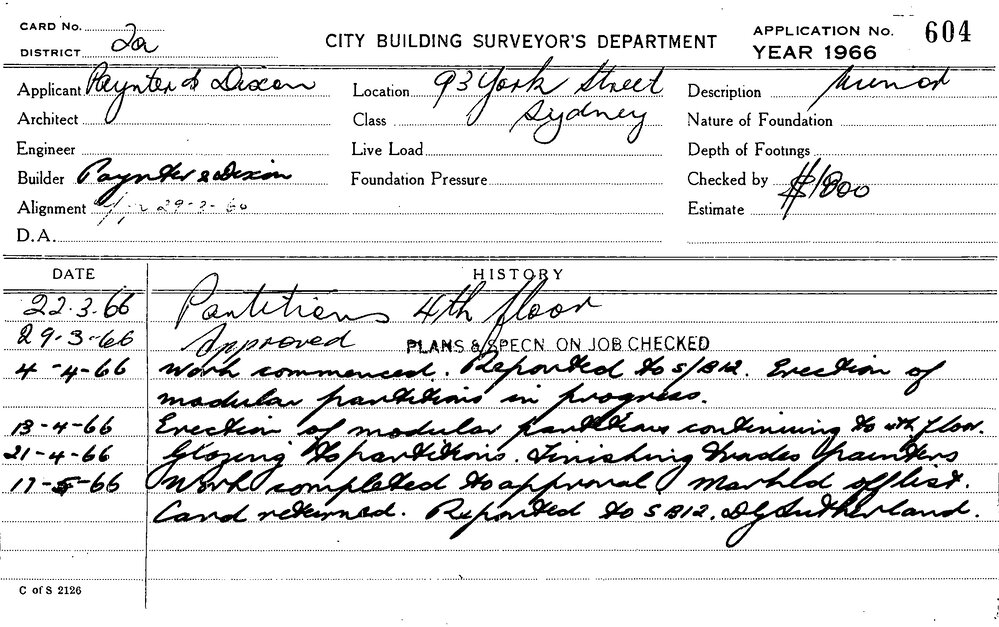 CARD No.
DISTRICT 2a
CITY BUILDING SURVEYOR'S DEPARTMENT
APPLICATION No. 604
YEAR 1966
Applicant Paynter & Dixon
Location 93 York Street
Description Minor
Architect
Class Sydney
Nature of Foundation
Engineer
Live Load
Depth of Footings
Builder Paynter & Dixon
Foundation Pressure
Checked by
Alignment 29-3-66
Estimate $1800
D.A.
DATE HISTORY
22.3.66 Partitions 4th floor
29-3-66 Approved PLANS & SPECN ON JOB CHECKED
4-4-66 Work commenced. Reported to S/B12. Erection of
modular partitions in progress.
13-4-66 Erection of modular partitions continuing to 4th floor.
21-4-66 Glazing to partitions. Finishing trades painters
17-5-66 Work completed to approval Markd off list.
Card returned. Reported to SB12. DG Sutherland.
C of S 2126